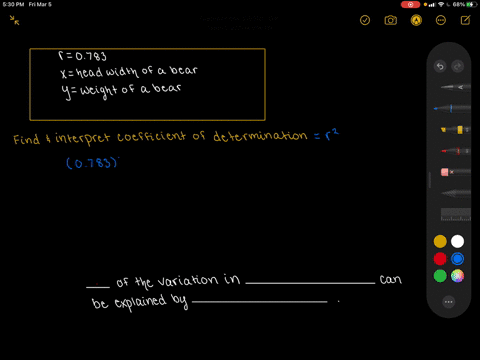 5:30 PM Fri Mar 5
68%
r = 0.783
x = head width of a bear
y = weight of a bear
Find & interpret coefficient of determination = r²
(0.783)
___ of the variation in ___ can
be explained by ___ .